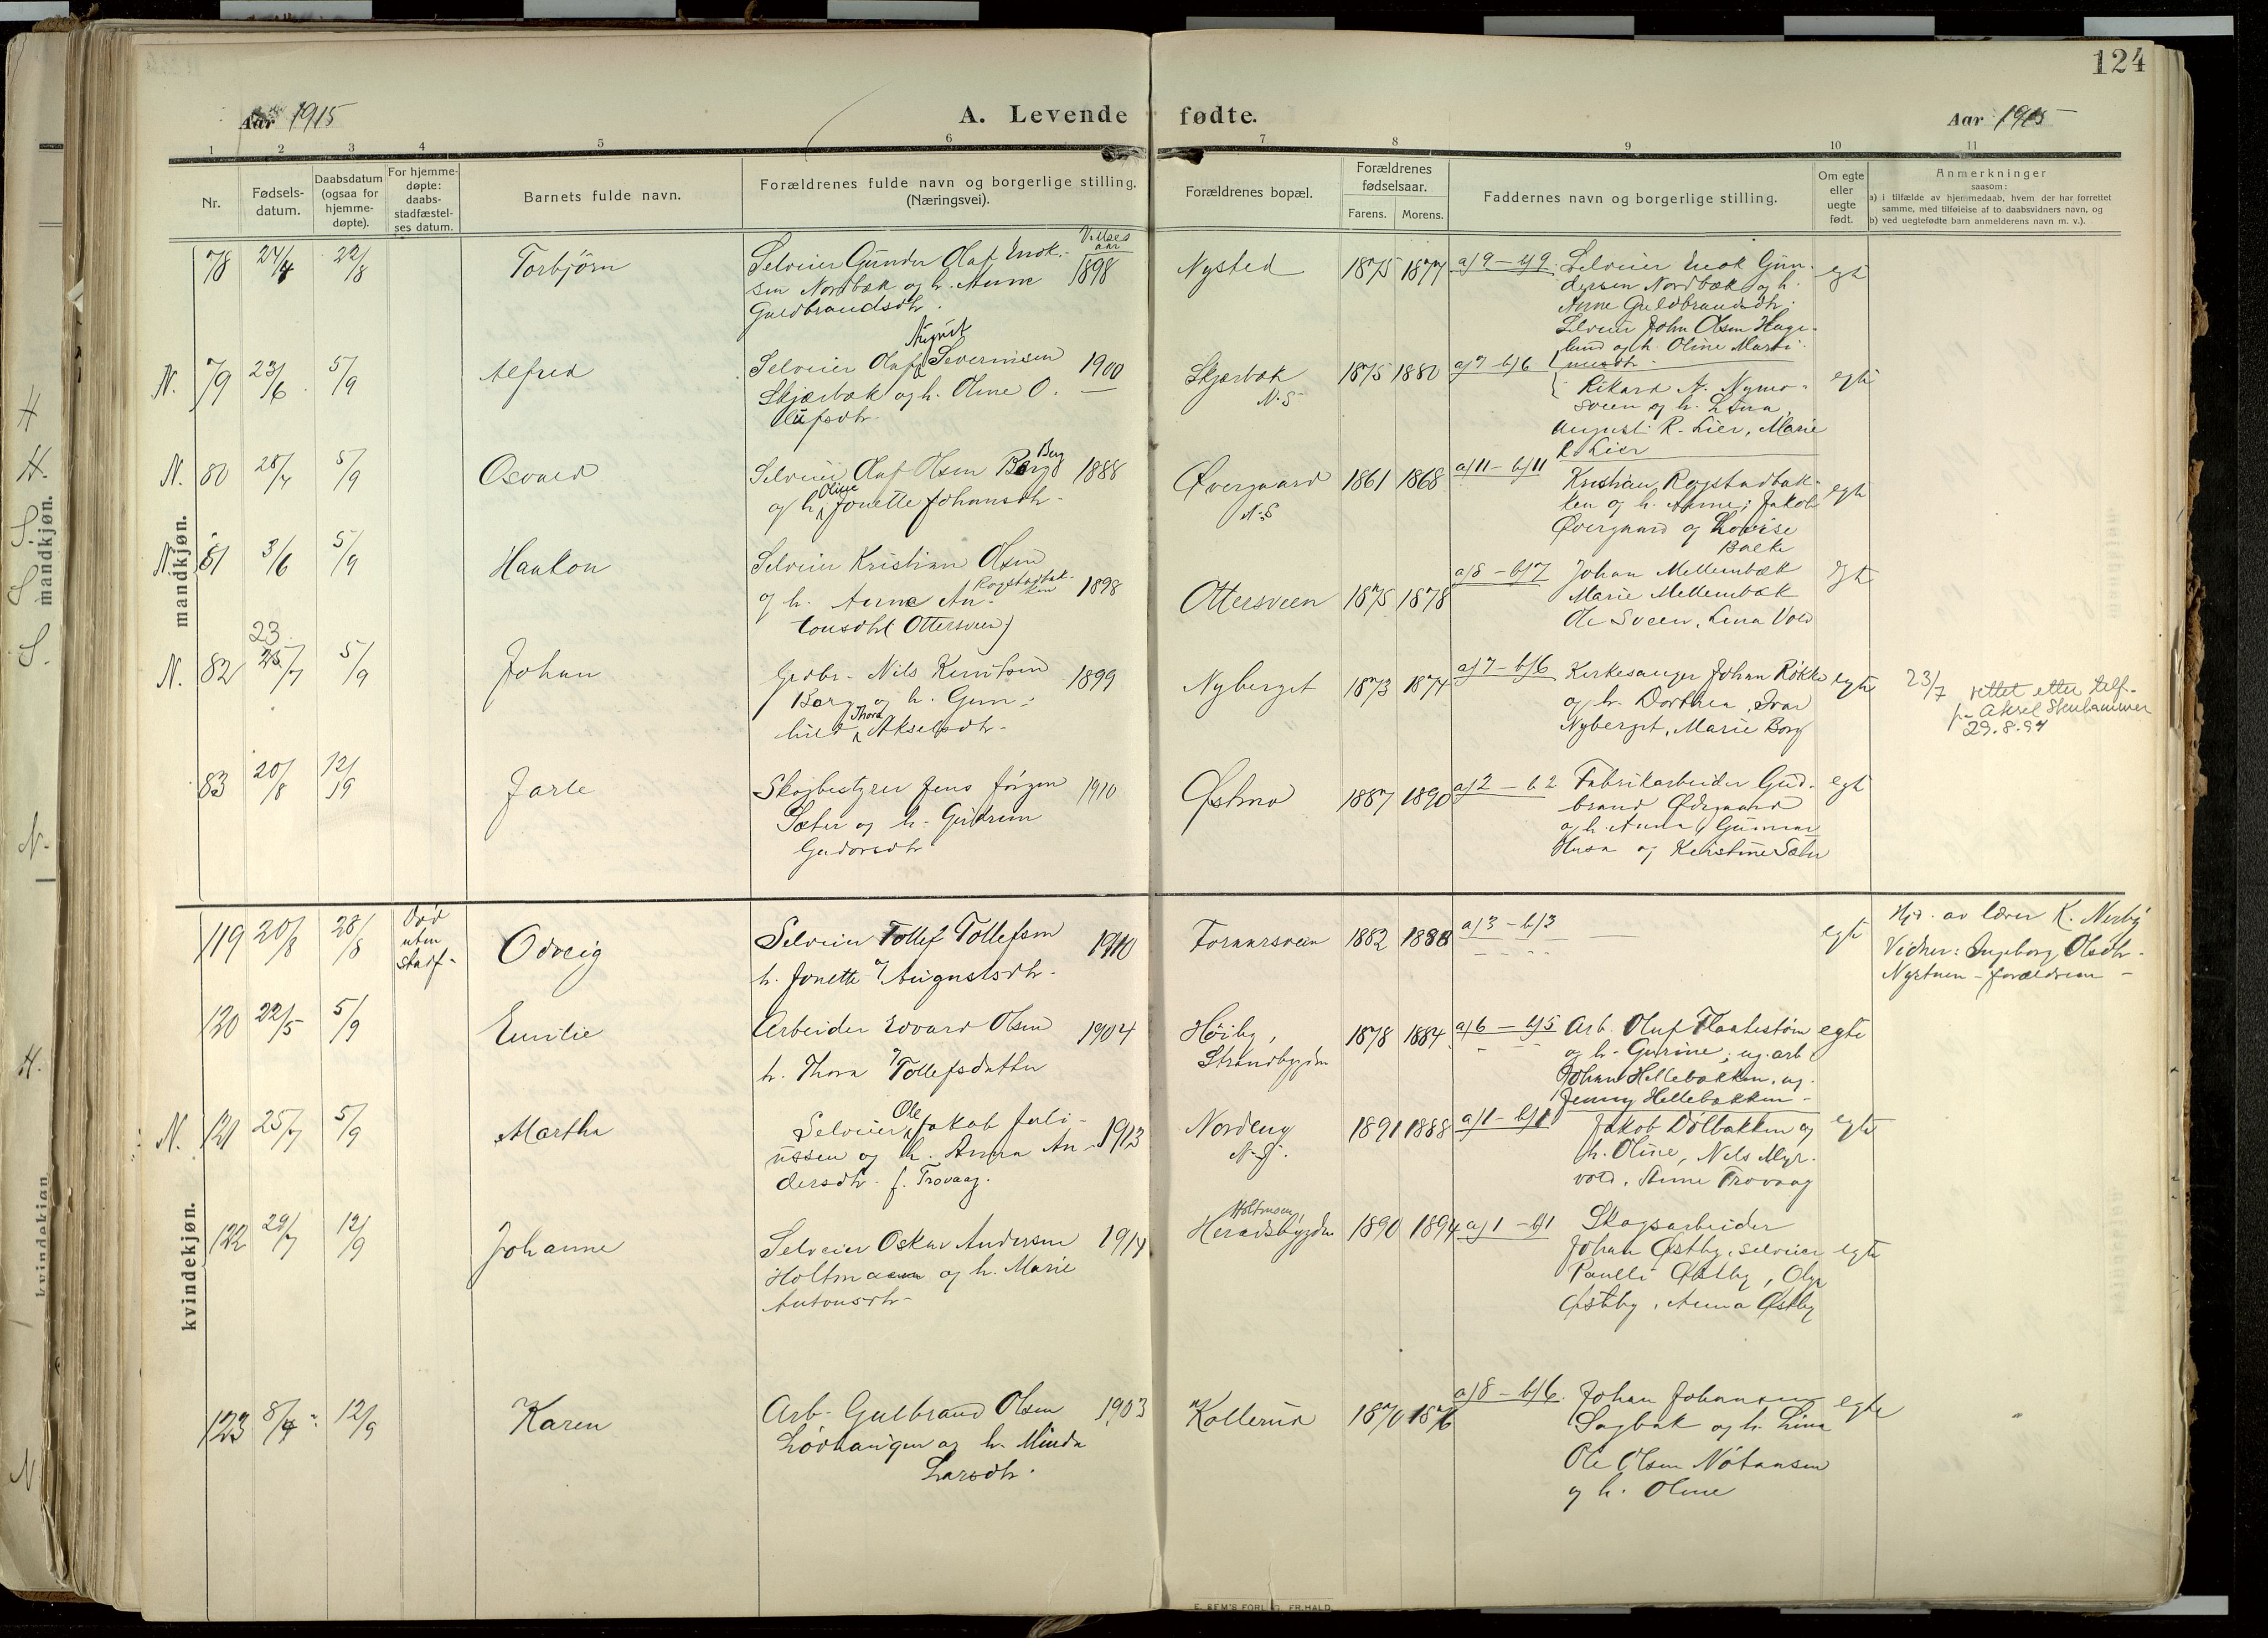 124
Aar 1915
A. Levende fødte.
Aar 1915
1 2 3 4 5 6 7 8 9 10 11
Nr.
Fødsels-
datum.
Daabsdatum
(ogsaa for
hjemme-
døpte).
For hjemme-
døpte:
daabs-
stadfæstel-
ses datum.
Barnets fulde navn.
Forældrenes fulde navn og borgerlige stilling.
(Næringsvei).
Forældrenes bopæl.
Forældrenes
fødselsaar.
Farens. Morens.
Faddernes navn og borgerlige stilling.
Om egte
eller
uegte
født.
Anmerkninger
saasom:
a) i tilfælde av hjemmedaab, hvem der har forrettet
samme, med tilføielse af to daabsvidners navn, og
b) ved uegtefødte barn anmelderens navn m. v.).
mandkjøn.
78 24/4 22/8 Torbjørn
Selveier Gunder Olaf Enok-
sen Nordbæk og h. Anne
Guldbrandsdtr.
Vielses
aar
1898
Nysted 1875 1877 a) 9 - b) 9
Selveier Enok Gun-
dersen Nordbæk og h.
Anne Guldbrandsdtr.
Selveier John Olsen Hage-
lund og h. Oline Marti-
nusdtr.
egte
N. 79 23/6 5/9 Alfred
August
Selveier Olaf Severinsen
Skjærbæk og h. Oline O.
Olufsdtr.
1900
Skjærbæk
N. S
1875 1880 a) 7 - b) 6
Rikard A. Nymo-
sveen og h. Lina,
August R. Lier, Marie
R Lier
egte
N. 80 28/7 5/9 Osvald
Selveier Oluf Olsen Berg
Berg
og h. Oline Jonette Johansdtr.
1888
Øvergaard
N. S
1861 1868 a) 11 - b) 11
Kristian Rogstadbak-
ken og h. Anne; Jakob
Øvergaard og Lovise
Bakke
egte
N. 81 3/6 5/9 Haakon
Selveier Kristian Olsen
Rogstadbak-
ken
og h. Anne An-
tonsdtr (Ottersveen)
1898
Ottersveen 1875 1878 a) 8 - b) 7
Johan Mellembæk
Marie Mellembæk
Ole Sveen, Lena Vold
egte
N. 82 23 25/7 5/9 Johan
Grdbr. Nils Knutsen
Berg og h. Gun-
hild Thora Akselsdtr.
1899
Nyberget 1873 1874 a) 7 - b) 6
Kirkesanger Johan Røkke
og h. Dorthea, Ivar
Nyberget, Marie Borg
egte
23/7 rettet etter telf.
fra Aksel Stenhammer
29.8.94
83 20/8 12/19 Jarle
Skogbestyrer Jens Jørgen
Sæter og h. Gudrun
Gudorsdtr
1910
Østmo 1887 1890 a) 2 - b 2
Fabrikarbeider Gud-
brand Ødegaard
og h. Anna, Gunnar
Husa og Kristine Sæter
egte
kvindekjøn.
119 20/8 28/8
Død
uten
stadf.
Odveig
Selveier Tollef Tollefsen
h. Jonette Augustsdtr.
1910
1882 1888 a) 3 - b) 3
egte
Hjd. av lærer K. Nerby
Vidner: Ingeborg Olsdtr.
Nystuen - forældrene
120 22/5 5/9 Emilie
Arbeider Edvard Olsen
h. Thora Tollefsdatter
1904
Høiby,
Strandbygden
1878 1884 a) 6 - b) 5
Arb. Oluf Flaatestøm
og h. Gurine; ug. arb
Johan Hellebækken, ug.
Jenny Hellebækken
egte
N. 121 25/7 5/9 Martha
Selveier Ole Jakob Juli-
ussen og h. Anna An-
dersdtr. f. Trovaag.
1913
Nordeng
N. S.
1891 1888 a) 1 - b) 1
Jakob Dølbakken og
h. Oline, Nels Myr-
vold, Anne Trovaag
egte
122 29/7 12/9 Johanne
Selveier Oskar Andersen
Holtmoen og h. Marie
Antonsdtr.
1914
Holtmoen
Heradsbygden
1890 1894 a) 1 - b) 1
Skogsarbeider
Johan Østby, selveier
Paulli Østby, Olga
Østby, Anna Østby
egte
123 8/4 12/9 Karen
Arb. Gulbrand Olsen
Løvhaugen og h. Minda
Larsdtr.
1903
Kollerud 1870 1876 a) 8 - b) 6.
Johan Johansen
Sagbak og h. Lina
Ole Olsen Nøtaasen
og h. Oline
egte
E. SEM'S FORLAG, FR.HALD.